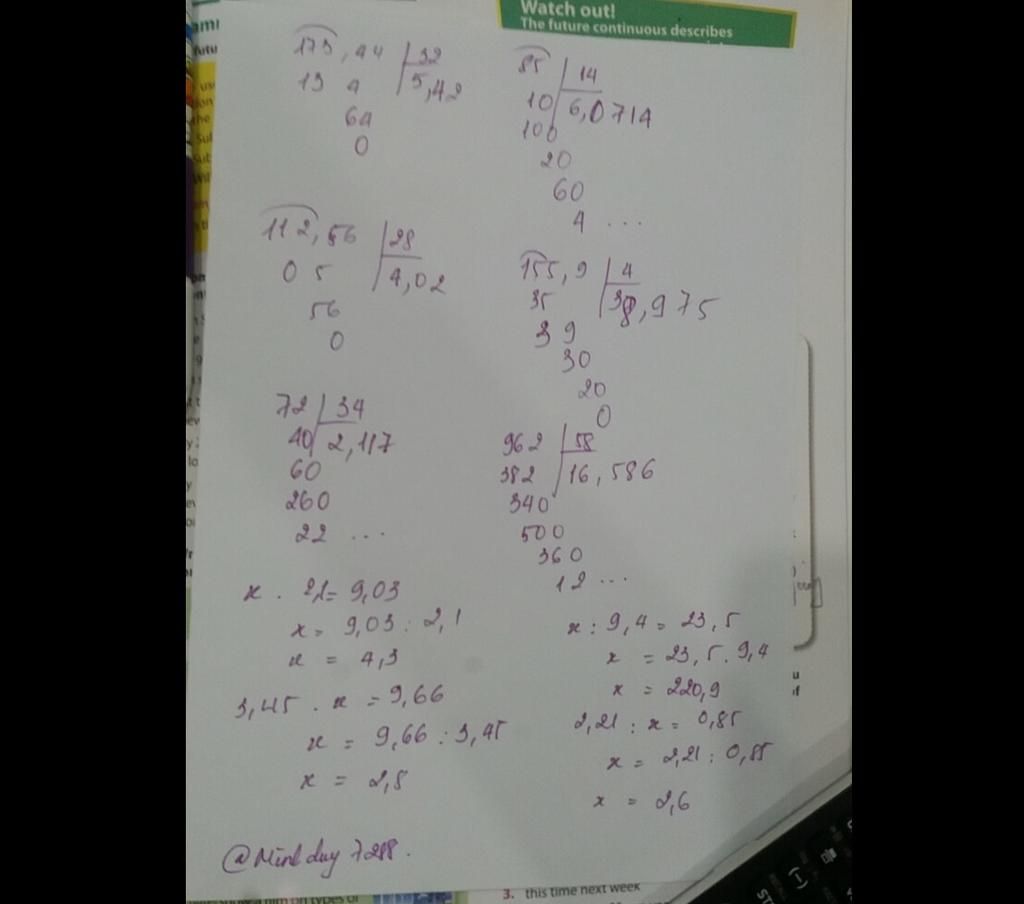 Watch out!
The future continuous describes
173,44 | 32
13 4 | 5,42
64
0
85 | 14
10 | 6,0714
100
20
60
4 ...
112,56 | 28
0 5 | 4,02
56
0
155,9 | 4
35 | 38,975
39
30
20
0
72 | 34
40 | 2,117
60
260
22 ...
962 | 58
382 | 16,586
340
500
360
12 ...
x . 2,1 = 9,03
x = 9,03 : 2,1
x = 4,3
3,45 . x = 9,66
x = 9,66 : 3,45
x = 2,8
x : 9,4 = 23,5
x = 23,5 . 9,4
x = 220,9
2,21 : x = 0,85
x = 2,21 : 0,85
x = 2,6
@Minhduy7288.
3. this time next week